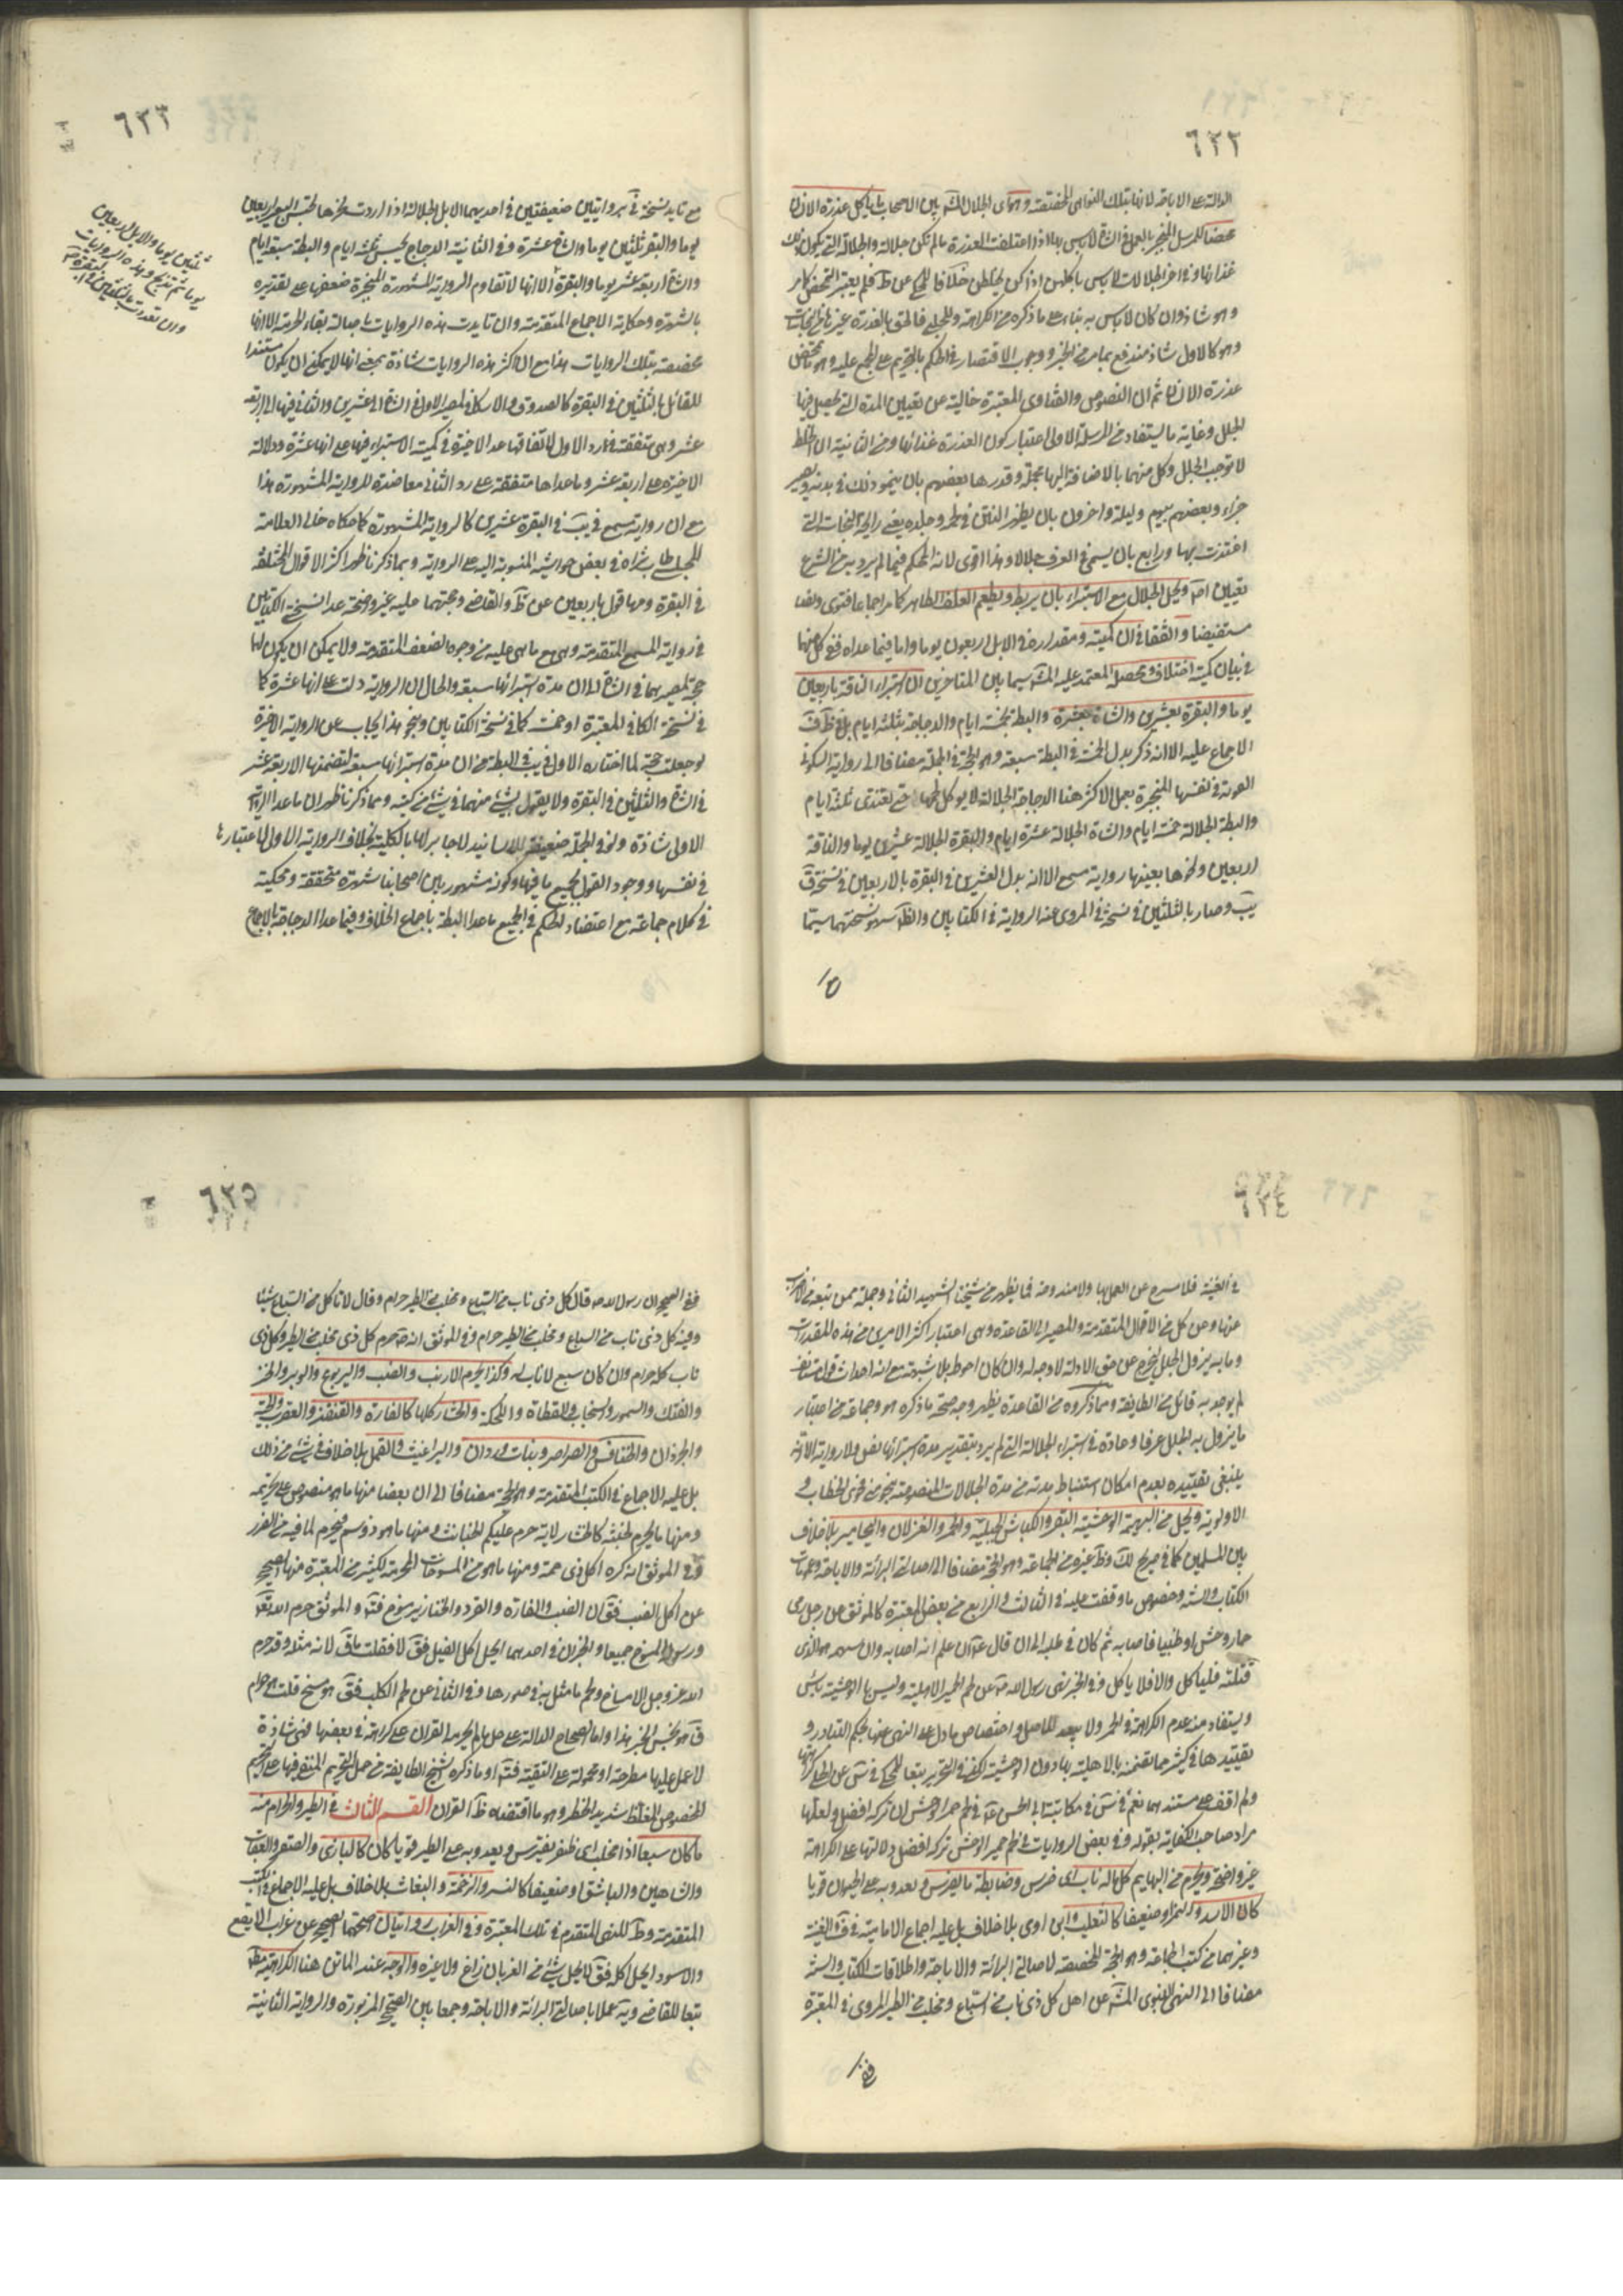 ٦٢٢
الدالة على الاباحة لانها بتلك النواهي مخصصة وهما اى الجلال المشهور بين الاصحاب ما ياكل عذرة الانسان
محضا للمرسل المنجبر بالعمل في الشاة لاباس بها اذا اعتلفت العذرة ما لم تكن جلالة والجلالة التى يكون ذلك
غذائها وفي اخر الجلالات لاباس باكلهن اذا كن يخلطن خلافا للمحكى عن ط فلم يعتبر التمحض
وهو شاذ وان كان لاباس به بناء على ما ذكره من الكراهة وللحلبى فالحق بالعذرة غيرها من النجاسات
وهو كالاول شاذ مندفع بما مر من الخبر ووجوب الاقتصار في الحكم بالتحريم على المجمع عليه وهو تمحض
عذرة الانسان ثم ان النصوص والفتاوى المعتبرة خالية عن تعيين المدة التى يحصل فيها
الجلل وغاية ما يستفاد من المرسلة الاولى اعتبار كون العذرة غذائها ومن الثانية ان الخلط
لا توجب الجلل وكل منهما بالاضافة اليها مجملة وقدرها بعضهم بان ينمو ذلك في بدنه ويصير
جزء وبعضهم بيوم وليلة واخرون بان يظهر النتن في لحمه وجلده يعنى رايحة النجاسات التى
اغتذت بها ورابع بان يسمى في العرف جلالا وهذا اقوى لانه المحكم فيما لم يرد به من الشرع
تعيين امر ويحل الجلال مع الاستبراء بان يربط ويطعم العلف الطاهر كما مر اجماعا فتوى ونصا
مستفيضا واتفقا في ان كميته ومقداره في الابل اربعون يوما واما فيما عداه ففى كل منهما
في بيان كمية اختلاف ومحصله المعتمد عليه المشهور سيما بين المتاخرين ان استبراء الناقة باربعين
يوما والبقرة بعشرين والشاة بعشرة والبطة بخمسة ايام والدجاجة بثلثة ايام بل في ظ ف
الاجماع عليه الا انه ذكر بدل الخمسة في البطة سبعة وهو الحجة في الجملة مضافا الى رواية السكونى
القوية في نفسها المنجبرة بعمل الاكثر هنا الدجاجة الجلالة لا يوكل لحمها حتى تغتذى ثلثة ايام
والبطة الجلالة خمسة ايام والشاة الجلالة عشرة ايام والبقرة الجلالة عشرين يوما والناقة
اربعين ونحوها بعينها رواية مسمع الا انه بدل العشرين في البقرة بالاربعين في نسخة ف
يب وصار بالثلثين في نسخة في المروى عنه الرواية في الكتابين والظ سهو نسختهما سيما
٦٢٣
مع تايد نسخة في بروايتين ضعيفتين في احديهما الابل الجلالة اذا اردت نحرها تحبس البعير اربعين
يوما والبقر ثلثين يوما والشاة عشرة وفي الثانية الدجاج يحبس ثلثة ايام والبطة سبعة ايام
والشاة اربعة عشر يوما والبقرة الا انها لا تقاوم الرواية المشهورة المنجبرة ضعفها على تقديره
بالشهرة وحكاية الاجماع المتقدمة وان تايدت هذه الروايات باصالة بقاء الحرمة الا انها
مخصصة بتلك الروايات هذا مع ان اكثر هذه الروايات شاذة بمعنى انها لا يمكن ان يكون مستندا
للقائل بالثلثين في البقرة كالصدوق والاسكافي لمصير الاول في الشاة الى عشرين والثانى فيها الى اربعة
عشر وهي متفقة في رد الاول لاتفاقها عدا الاخيرة في كمية الاستبراء فيها على انها عشرة ودلالة
الاخيرة على اربعة عشر وما عداها متفقة على رد الثانى معاضدة للرواية المشهورة هذا
مع ان رواية مسمع في يب في البقرة عشرين كالرواية المشهورة كما حكاه خالى العلامة
المجلسى طاب ثراه في بعض حواشيه المنسوبة اليه على الرواية وبما ذكرنا ظهر اكثر الاقوال المختلفة
في البقرة ومنها قول باربعين عن ط والقاضى وحجتهما عليه غير واضحة عدا نسخة الكتابين
في رواية المسمع المتقدمة وهي مع ما هي عليه من وجوه الضعف المتقدمة ولا يمكن ان يكون لها
حجة لمصيرهما في الشاة الى ان مدة استبرائها سبعة والحال ان الرواية دلت على انها عشرة كما
في نسخة الكافي المعتبرة او خمسة كما في نسخة الكتابين وبنحو هذا يجاب عن الرواية الاخيرة
لو جعلت حجة لما اختاره الاول في يب في البطة من ان مدة استبرائها سبعة لتضمنها الاربعة عشر
في الشاة والثلثين في البقرة ولا يقول بشئ منهما في شئ من كتبه ومما ذكرنا ظهر ان ما عدا الرواية
الاولى شاذة ونحو الجملة ضعيفة الاسانيد لا جابر لها بالكلية بخلاف الرواية الاولى لاعتبارها
في نفسها ووجود القول بجميع ما فيها وكونه مشهورا بين اصحابنا شهرة متحققة ومحكية
في كلام جماعة مع اعتضاد الحكم في الجميع ما عدا البطة باجماع الخلاف وفيما عدا الدجاجة بالاجماع
ثلثين يوما والابل اربعين
يوما ثم تذبح وهذه الروايات
وان تعددت
٦٢٤
في الغنية فلا مسرح عن العمل بها ولا مندوحة فما يظهر من شيخنا الشهيد الثانى وجملة ممن تبعه من الاضراب
عنها وعن كل من الاقوال المتقدمة والمصير الى القاعدة وهي اعتبار اكثر الامرين من هذه المقدرات
وما به يزول الجلل ليخرج عن حق الادلة لا وجه له وان كان احوط بلا شبهة مع انه احداث قول مستانف
لم يوجد به قائل من الطايفة ومما ذكروه من القاعدة يظهر وجه صحة ما ذكره هو وجماعة من اعتبار
ما يزول به الجلل عرفا وعادة في استبراء الجلالة التى لم يرد بتقدير مدة استبرائها نص ولا رواية الا انه
ينبغى تقييده بعدم امكان استنباط مدته من مدة الجلالات المنصوصة بنحو من فحوى الخطاب و
الاولوية ويحل من البهيمة الوحشية البقر والكباش الجبلية والحمر والغزلان واليحامير بلا خلاف
بين المسلمين كما في صريح لك وظ غيره من الجماعة وهو الحجة مضافا الى اصالتى البرائة والاباحة وعمومات
الكتاب والسنة وخصوص ما وقفت عليه في الثالث والرابع من بعض المعتبرة كالموثق عن رجل رمى
حمار وحش او ظبيا فاصابه ثم كان في طلبه الى ان قال ع ان علم انه اصابه وان سهمه هو الذى
قتله فلياكل والا فلا ياكل وفي الخبر نهى رسول الله ص عن لحم الحمير الاهلية وليس بها الوحشية باس
ويستفاد منه عدم الكراهة في الحمر ولا بعد للاصل واختصاص ما دل على النهى عنها بحكم التبادر و
تقييدها في كثير مما تضمنه بالاهلية بها دون الوحشية لكن في التحرير تبعا للمحكى في س عن الحلى كراهتها
ولم اقف على مستندهما نعم في س في مكاتبة ابى الحسن ع في لحم حمر الوحش ان تركه افضل ولعلها
مراد صاحب الكفاية بقوله وفي بعض الروايات في لحم حمير الوحش تركه افضل ودلالتها على الكراهة
غير واضحة ويحرم من البهايم كل ما له ناب اى ضرس وضابطه ما يفترس ويعدو به على الحيوان قويا
كان كالاسد والنمر او ضعيفا كالثعلب وابن اوى بلا خلاف بل عليه اجماع الامامية في ف والغنية
وغيرهما من كتب الجماعة وهو الحجة المخصصة لاصالتى البرائة والاباحة واطلاقات الكتاب والسنة
مضافا الى النهى النبوى المشهور عن اكل كل ذى ناب من السباع ومخلب من الطير المروى في المعتبرة
ففى
٦٢٥
ففى الصحيح ان رسول الله ص قال كل ذى ناب من السباع ومخلب من الطير حرام وقال لا تاكل من السباع شيئا
وفيه كل ذى ناب من السباع ومخلب من الطير حرام وفي الموثق انه ص حرم كل ذى مخلب من الطير وكل ذى
ناب كله حرام وان كان سبع لا ناب له وكذا يحرم الارنب والضب واليربوع والوبر والخز
والفنك والسمور والسنجاب والعظاة واللحكة والحشار كلها كالفارة والقنفذ والعقرب والحية
والجرذان والخنافس والصراصر وبنات وردان والبراغيث والقمل بلا خلاف في شئ من ذلك
بل عليه الاجماع في الكتب المتقدمة وهو الحجة مضافا الى ان بعضا منها ما هو منصوص على تحريمه
ومنها ما يحرم لخبثه كالحشار لاية حرم عليكم الخبائث ومنها ما هو ذو سم فيحرم لما فيه من الضرر
وفي الموثق انه كره اكل ذى حمة ومنها ما هو من المسوخات المحرمة لكثير من المعتبرة منها الصحيح
عن اكل الضب فق ان الضب والفارة والقرد والخنازير مسوخ فت و الموثق حرم الله تعالى
ورسوله المسوخ جميعا والخبران في احديهما ايحل اكل الفيل فق لا فقلت ولم ق لانه مثلة وقد حرم
الله عز وجل الامساخ ولحم ما مثل به في صورها وفي الثانى عن لحم الكلب فق هو مسخ قلت هو حرام
ق هو نجس الخبر هذا واما الصحاح الدالة على حل ما لم يحرمه القران على كراهة في بعضها فهى شاذة
لا عمل عليها مطرحة او محمولة على التقية فت او ما ذكره شيخ الطايفة من حمل التحريم المنفى فيها على التحريم
المخصوص المغلظ شديد الخطر وهو ما اقتضاه ظ القران القسم الثالث في الطير والحرام منه
ما كان سبعا اذا مخلب اى ظفر يفترس ويعدو به على الطير قويا كان كالبازى والصقر والعقاب
والشاهين والباشق او ضعيفا كالنسر والرخمة والبغاث بلا خلاف بل عليه الاجماع في الكتب
المتقدمة وظ للنص المتقدم في تلك المعتبرة وفي الغراب روايتان صحتهما الصحيح عن غراب الابقع
والاسود ايحل اكله فق لا يحل شئ من الغربان زاغ ولا غيره والوجه عند الماتن هنا الكراهية مط
تبعا للقاضى وية عملا باصالة البرائة والاباحة وجمعا بين الصحيح المزبورة والرواية الثانية